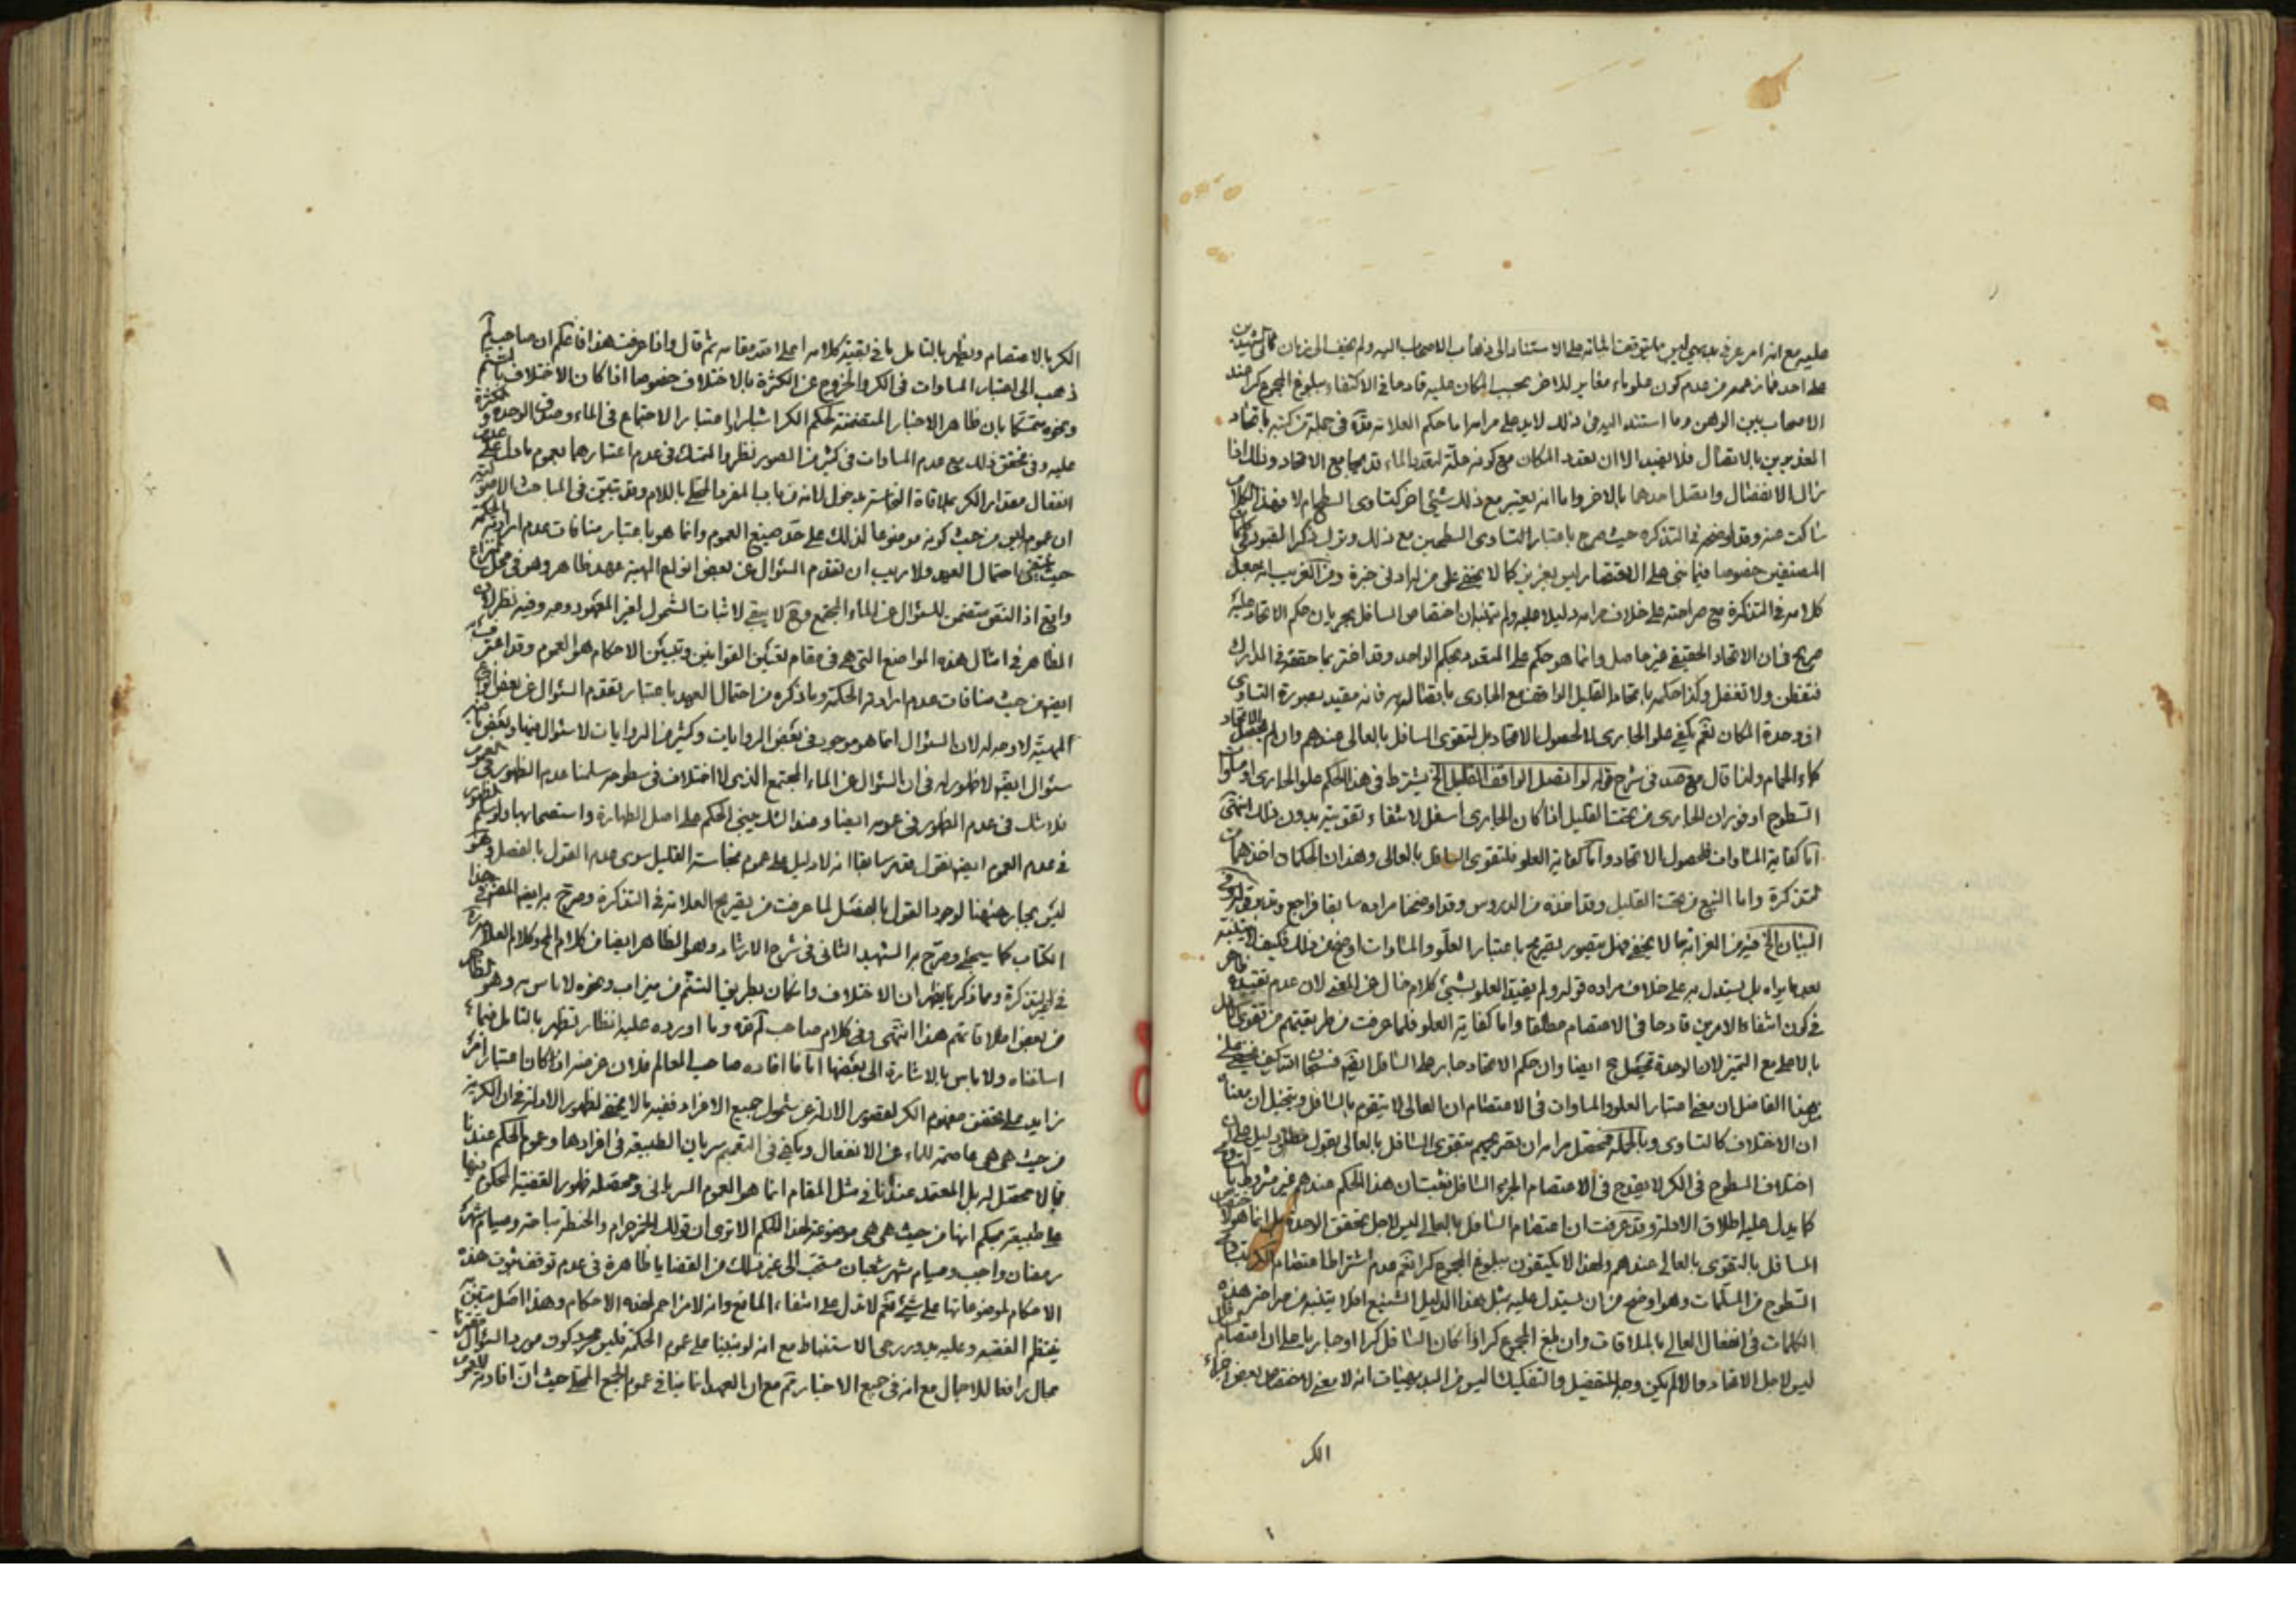 عليه مع انه امر عرفي بديهي ليس مما يتوقف اثباته على الاستناد الى ذهاب الاصحاب اليه ولم يخف الى زمان
على احد فما زعمه من عدم كون علو ماء مغاير للاخر بحسب المكان عليه قادحا في الاكتفاء ببلوغ المجموع كرا عند
الاصحاب بين الوهن وما استند اليه في ذلك لا يدل على مرامه اما حكم العلامة قده في جملة من كتبه باتحاد
الغديرين بالاتصال فلا يفيد الا ان تعدد المكان مع كونه علة لتعدد الماء قد يجامع الاتحاد وذلك اذا
زال الانفصال واتصل احدهما بالاخر واما انه يعتبر مع ذلك شيئ اخر كتساوى السطحين ام لا فهذا الكلام
ساكت عنه وقد اوضحه في التذكرة حيث صرح باعتبار التساوى السطحين مع ذلك وترك ذكر القيود في كلام
المصنفين خصوصا فيما بنى على الاقتصار ليس بعزيز كما لا يخفى على من له ادنى خبرة ومن الغريب انه جعل
كلامه في التذكرة مع صراحته على خلاف مرامه دليلا عليه ولم يتنبه ان اختصاص السافل بجريان حكم الاتحاد عليه
صريح في ان الاتحاد الحقيقي غير حاصل وانما هو حكم على المتعدد بحكم الواحد وقد اغتر بما حققه في المدارك
فتفطن ولا تغفل وكذا حكمه باتحاد القليل الواقف مع الجارى باتصاله به فانه مقيد بصورة التساوى
اذ وحدة المكان نعم يكفي علو الجارى لا لحصول الاتحاد بل لتقوى السافل بالعالى عندهم وان لم يحصل الاتحاد
كماء الحمام ولذا قال مع صد في شرح قوله لو اتصل الواقف القليل الخ يشترط في هذا الحكم علو الجارى او مساواة
السطوح او فوران الجارى من تحت القليل اذا كان الجارى اسفل لانتفاء تقويته بدون ذلك انتهى
اما كفاية المساوات فلحصول الاتحاد واما كفاية العلو فلتقوى السافل بالعالى وهذان الحكمان اخذهما من
التذكرة واما النبع من تحت القليل وقد اخذه من الدروس وقد اوضحنا مراده سابقا فراجع
البنيان الخ فيه من الغرائب ما لا يخفى فهل يتصور تصريح باعتبار العلو والمساوات اوضح من ذلك فكيف لا يتنبه
بعد ما يراه بل يستدل به على خلاف مراده قوله ولم يقيد العلو بشيئ كلام خال عن المعنى لان عدم تقييده ظاهر
في كون انتفاء الامرين قادحا في الاعتصام مطلقا واما كفاية العلو فلما عرفت من طريقتهم من تقوى السافل
بالاعلى مع التميز لان الوحدة تحصل ح ايضا وان حكم الاتحاد جار على السافل
هذا الفاضل ان معنى اعتبار العلو والمساوات في الاعتصام ان العالى لا يتقوم بالسافل ويتخيل ان معناه
ان الاختلاف كالتساوى وبالجملة فمحصل مرامه ان تصريحهم بتقوى السافل بالعالى بقول مطلق دليل على ان
اختلاف السطوح في الكر لا يقدح في الاعتصام الجزء السافل فثبت ان هذا الحكم عندهم غير مشروط بالتساوى
كما يدل عليه اطلاق الادلة وقد عرفت ان اعتصام السافل بالعالى ليس لاجل تحقق الوحدة بل انما هو لاختصاص
السافل بالتقوى بالعالى عندهم ولهذا لا يكتفون ببلوغ المجموع كرا نعم عدم اشتراط اعتصام
السطوح من المسلمات وهو اوضح من ان يستدل عليه بمثل هذا الدليل الشنيع افلا يتنبه من صراحة هذه
الكلمات في انفعال العالى بالملاقات وان بلغ المجموع كرا اذا كان السافل كرا او جاريا على ان اعتصام السافل
ليس لاجل الاتحاد والا لم يكن وجه للتفصيل والتفكيك اليس من البديهيات انه لا معنى لاختصاص بعض اجزاء
الكر
الكر بالاعتصام ويظهر بالتامل ما في بقية كلامه اعلى الله مقامه ثم قال واذا عرفت هذا فاعلم ان صاحب لم
ذهب الى اعتبار المساوات في الكر والخروج عن الكثرة بالاختلاف خصوصا اذا كان الاختلاف بالتسنم
ونحوه متمسكا بان ظاهر الاخبار المتضمنة لحكم الكر اشتراط اعتبار الاجتماع في الماء وصدق الوحدة والكثرة
عليه وفي تحقق ذلك مع عدم المساوات في كثير من الصور نظر والتمسك في عدم اعتبارهما بعموم ما دل على عدم
انفعال مقدار الكر بملاقاة النجاسة مدخول لانه من باب المفرد المحلى باللام وقد تبين في المباحث الاصولية
ان عمومه ليس من حيث كونه موضوعا لذلك على حد صيغ العموم وانما هو باعتبار منافات عدم ارادته للحكمة
حيث ينتفي احتمال العهد ولا ريب ان تقدم السؤال عن بعض انواع المهية عهد ظاهر وهو في محل النزاع
واقع اذ النص متضمن للسؤال عن الماء المجتمع وح لا يبقى لاثبات الشمول لغير المعهود وجه وفيه نظر لان
الظاهر في امثال هذه المواضع التي هي في مقام تعيين القوانين وتبيين الاحكام هو العموم وقد اعترف به
ايضا من حيث منافات عدم ارادته الحكمة وما ذكره من احتمال العهد باعتبار تقدم السؤال عن بعض انواع
المهية لا وجه له لان السؤال انما هو موجود في بعض الروايات وكثير من الروايات لا سؤال فيها وبعض ما فيه
سؤال ايضا لا ظهور له في ان السؤال عن الماء المجتمع الذى لا اختلاف في سطوحه سلمنا عدم الظهور في العموم
فلا شك في عدم الظهور في عدمه ايضا وعند الشك يبني الحكم على اصل الطهارة واستصحابها ولو سلم الظهور
في عدم العموم ايضا نقول قد مر سابقا انه لا دليل على عموم نجاسة القليل سوى عدم القول بالفصل وهو
ليس بجار هيهنا لوجود القول بالفصل لما عرفت من تصريح العلامة في التذكرة وصرح به ايضا المصنف في هذا
الكتاب كما سيجئ وصرح به الشهيد الثاني في شرح الارشاد وهو الظاهر ايضا من كلام المع وكلام العلامة
في التذكرة ومما ذكر يظهر ان الاختلاف وان كان بطريق التسنم من ميزاب ونحوه لا باس به وهو الظاهر
من بعض اطلاقاتهم هذا انتهى وفي كلام صاحب لم قده وما اورده عليه انظار تظهر بالتامل فيما
اسلفناه ولا باس بالاشارة الى بعضها اما ما افاده صاحب المعالم فلان غرضه اذا كان اعتبار امر
زايد على تحقق مفهوم الكر لقصور الادلة عن شمول جميع الافراد ففيه ما لا يخفى لظهور الادلة في ان الكرية
من حيث هى هى عاصمة للماء عن الانفعال ويكفي في التعميم سريان الطبيعة في افرادها وعموم الحكم عندنا
مما لا محصل له بل المعتمد عندنا في مثل المقام انما هو العموم السرياني ومحصله ظهور القضية المحكوم فيها
على طبيعة بحكم انها من حيث هى هى موضوعة لهذا الحكم الا ترى ان قولك الخمر حرام والحنطة مباحة وصيام شهر
رمضان واجب وصيام شهر شعبان مستحب الى غير ذلك من القضايا ظاهرة في عدم توقف ثبوت هذه
الاحكام لموضوعاتها على شيئ نعم لا تدل على انتفاء المانع وانه لا مزاحم لهذه الاحكام وهذا اصل متين به
ينتظم الفقه وعليه يدور رحى الاستنباط مع انه لو بنينا على عموم الحكمة فليس مجرد كون مورد السؤال
مجال رافعا للاجمال مع انه في جميع الاخبار ثم مع ان العهد انما ينافي عموم الجمع المحلى حيث ان افادته للعموم